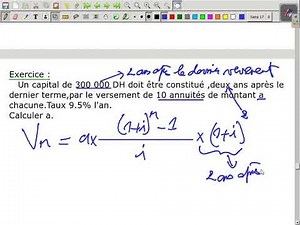 2 ans après le dernier versement
Exercice :
Un capital de 300 000 DH doit être constitué ,deux ans après le
dernier terme,par le versement de 10 annuités de montant a
chacune.Taux 9.5% l'an.
Calculer a.
Vn = a x ((1+i)^n - 1) / i x (1+i)^2
2 ans après